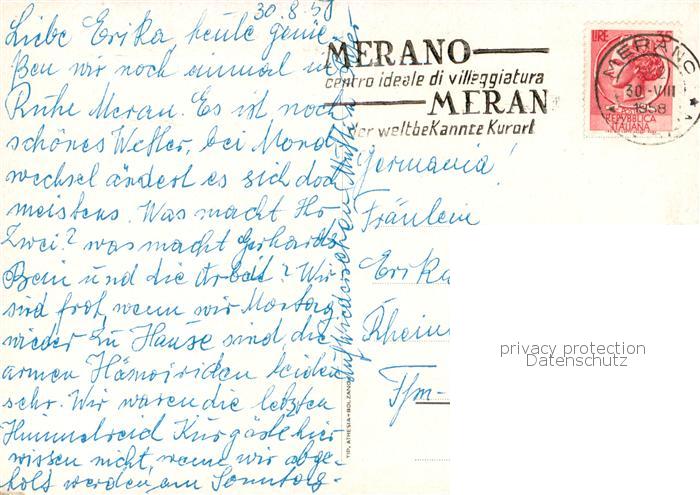 30.8.58
Liebe Erika, heute genie-
ßen wir noch einmal in
Ruhe Meran. Es ist noch
schönes Wetter, bei Mond
wechsel ändert es sich doch
meistens. Was macht Ihr
Zwei? was macht Gerhards
Bein und die Arbeit? Wir
sind froh, wenn wir Montag
wieder zu Hause sind, die
armen Hämoiriden leiden
sehr. Wir waren die letzten
Kurgäste hier
wissen nicht, wann wir abge-
holt werden am Sonntag-
Auf Wiedersehen Mutter
MERANO
centro ideale di villeggiatura
MERAN
der weltbekannte Kurort
LIRE
MERANO
30-VIII
1958
REPVBBLICA
ITALIANA
Germania!
Fräulein
Erika
Rhein
Ffm-
TIP. ATHESIA-BOLZANO
privacy protection
Datenschutz